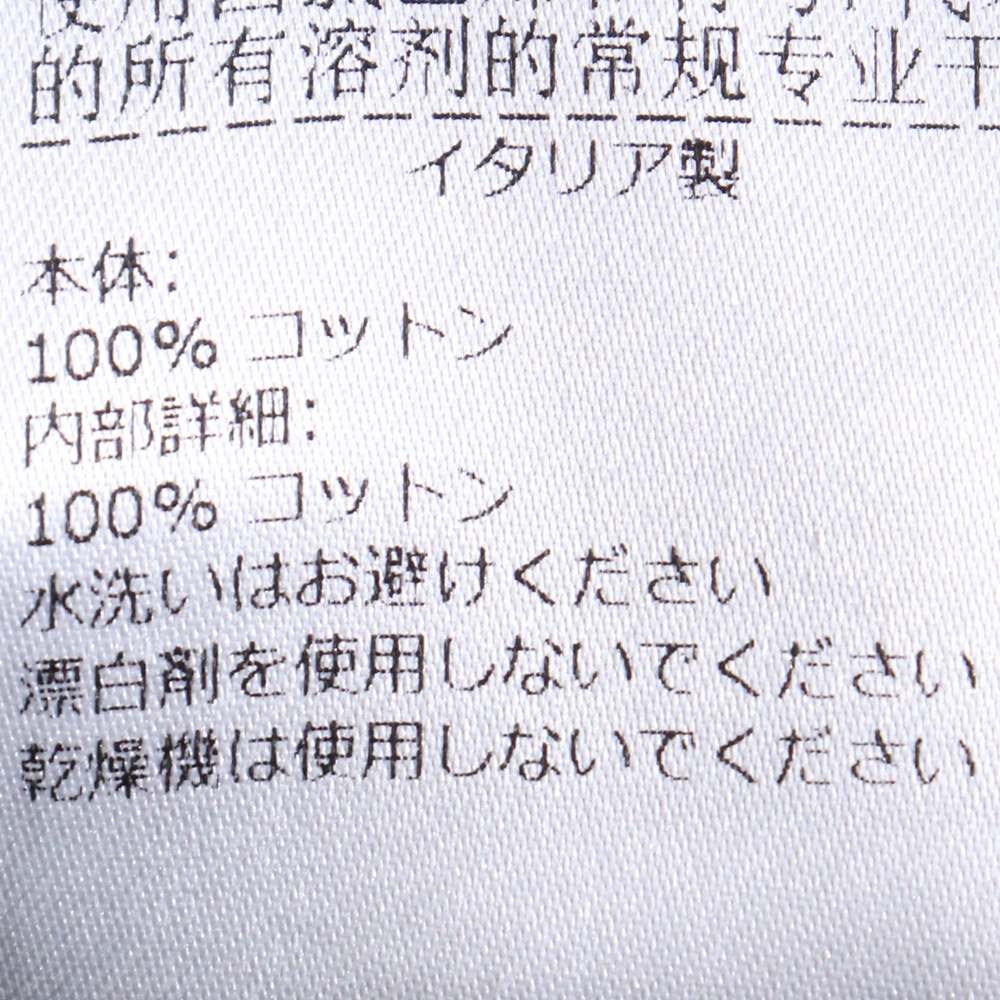 的所有溶剂的常规专业干
イタリア製
本体:
100% コットン
内部詳細:
100% コットン
水洗いはお避けください
漂白剤を使用しないでください
乾燥機は使用しないでください